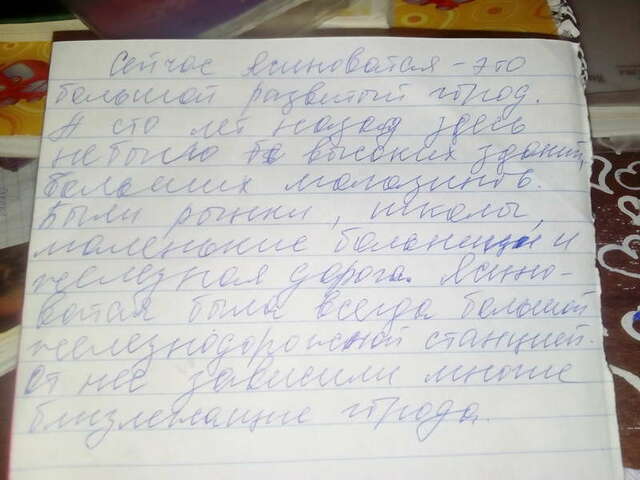 Сейчас Ясиноватая - это
большой развитый город.
А сто лет назад здесь
небыло высоких зданий,
больших магазинов.
Были рынки, школы,
маленькие больницы и
железная дорога. Ясино-
ватая была всегда большой
железнодорожной станцией.
От неё зависили многие
близлежащие города.